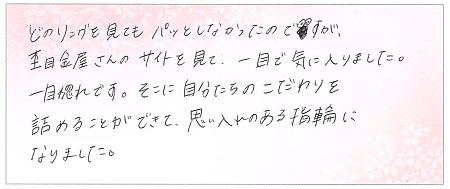 どのリングを見てもパッとしなかったのですが、
杢目金屋さんのサイトを見て、一目で気に入りました。
一目惚れです。そこに自分たちのこだわりを
詰めることができて、思い入れのある指輪に
なりました。